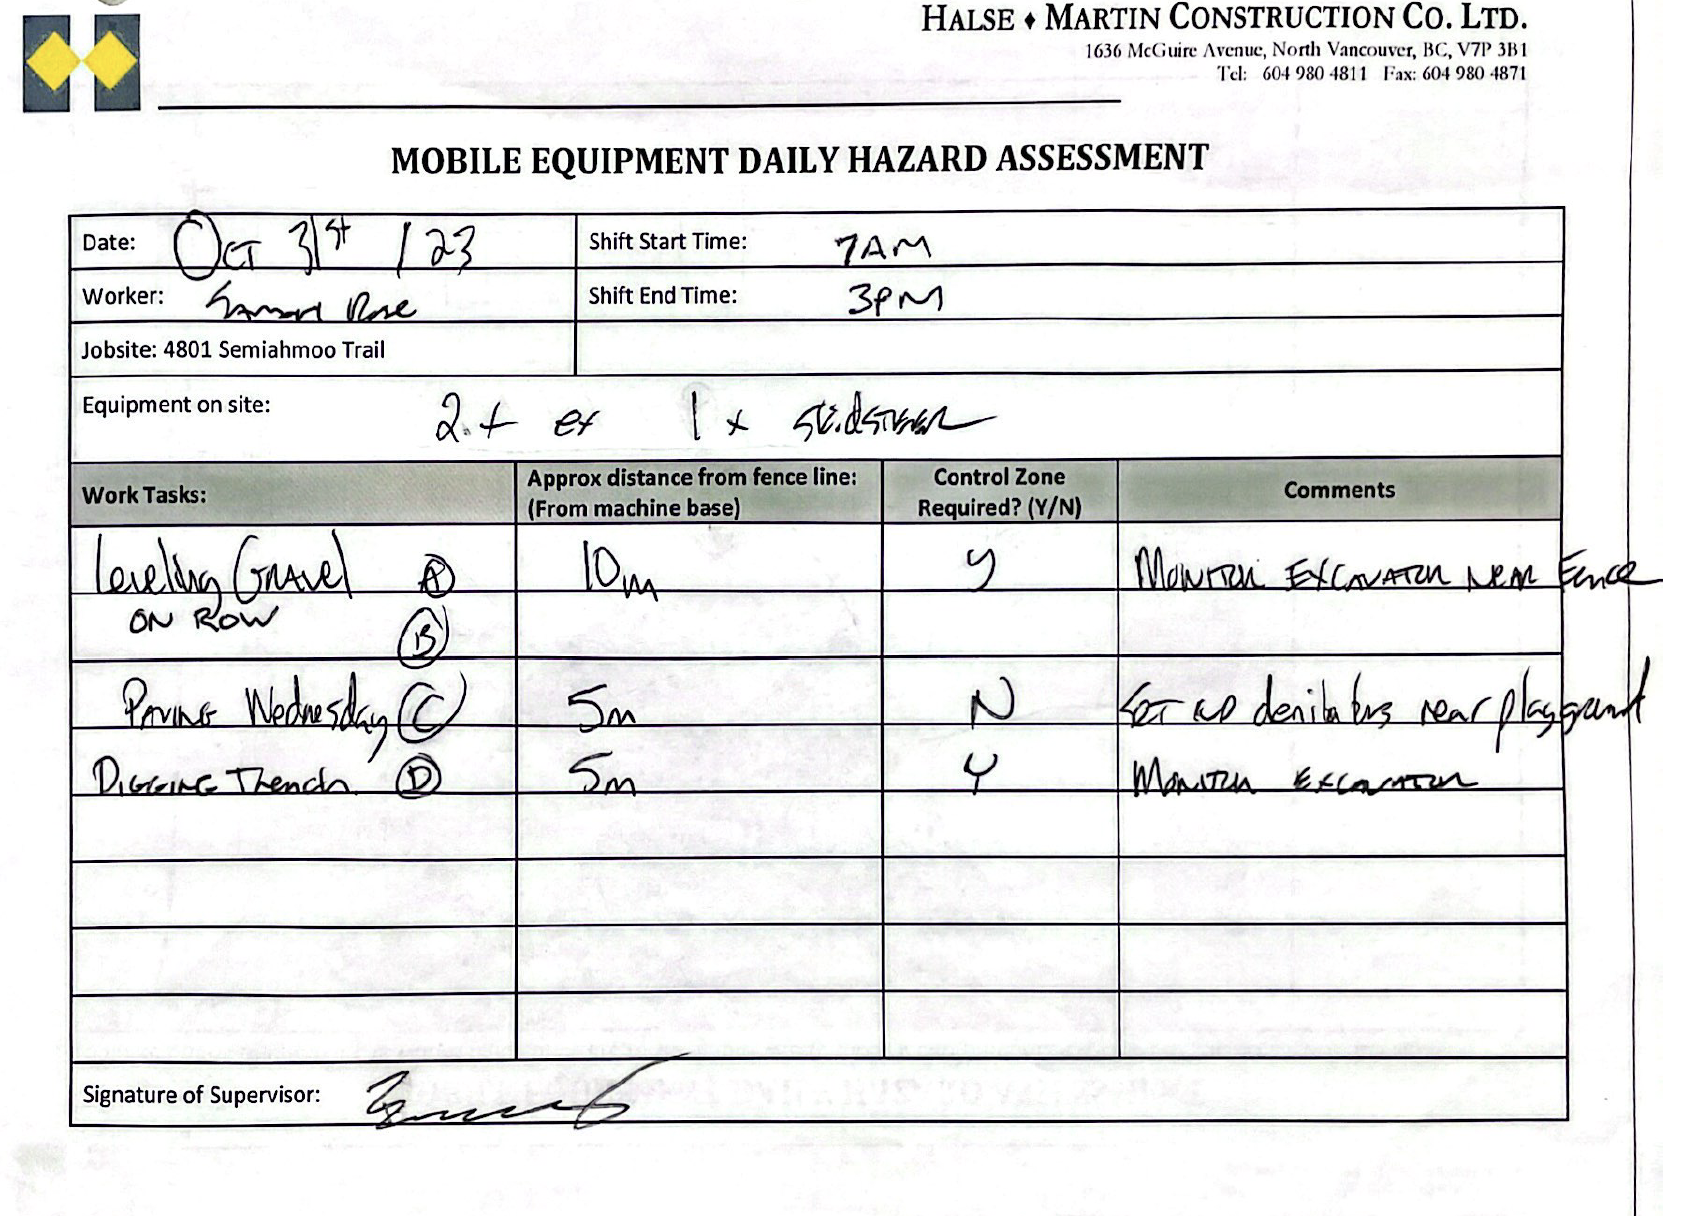 HALSE ♦ MARTIN CONSTRUCTION CO. LTD.
1636 McGuire Avenue, North Vancouver, BC, V7P 3B1
Tel: 604 980 4811 Fax: 604 980 4871
MOBILE EQUIPMENT DAILY HAZARD ASSESSMENT
Date: Oct 31st / 23
Shift Start Time: 7AM
Worker: Rose
Shift End Time: 3PM
Jobsite: 4801 Semiahmoo Trail
Equipment on site: 2 x ex 1 x skidsteer
Work Tasks:
Approx distance from fence line:
(From machine base)
Control Zone
Required? (Y/N)
Comments
Leveling Gravel A 10m Y Monitor Excavator near Fence
ON ROW
B
Paving Wednesday C 5m N Set up near playground
Digging Trench D 5m Y Monitor excavator
Signature of Supervisor: